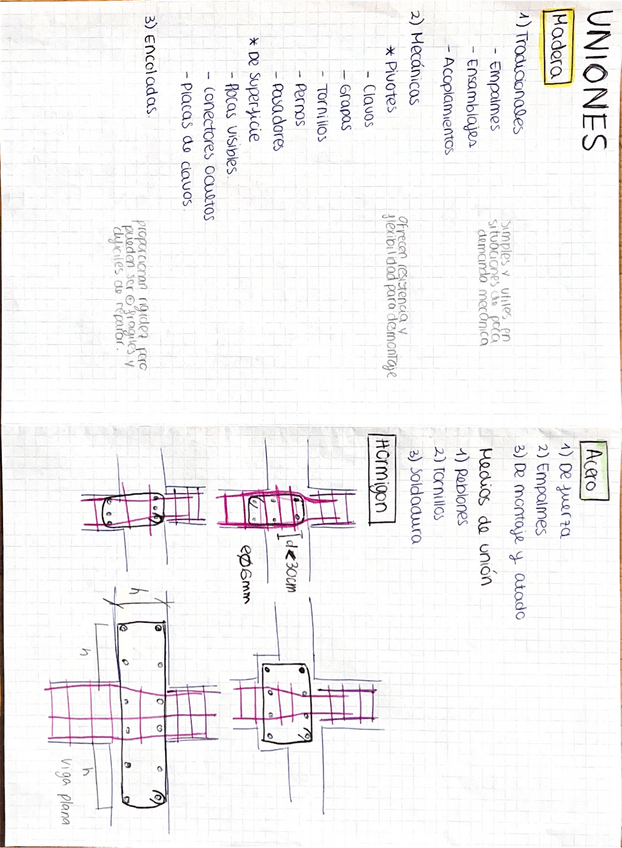 UNIONES
Madera
1) Tradicionales
- Empalmes
- Ensamblajes
- Acoplamientos
simples y utiles en
situaciones de poca
demanda mecánica
2) Mecánicas
* Pivotes
- Clavos
- Grapas
- Tornillos
- Pernos
- Pasadores
* De Superficie
- Placas visibles.
- Conectores ocultos
- Placas de clavos.
ofrecen resistencia y
flexibilidad para demontaje
3) Encoladas.
proporcionan rigidez pero
pueden ser + frágiles y
dificiles de reparar.
Acero
1) De fuerza
2) Empalmes
3) De montaje y atado
Medios de unión
1) Roblones
2) Tornillos
3) Soldadura
Hormigon
d<30cm
eØ6mm
h
h
h
viga plana